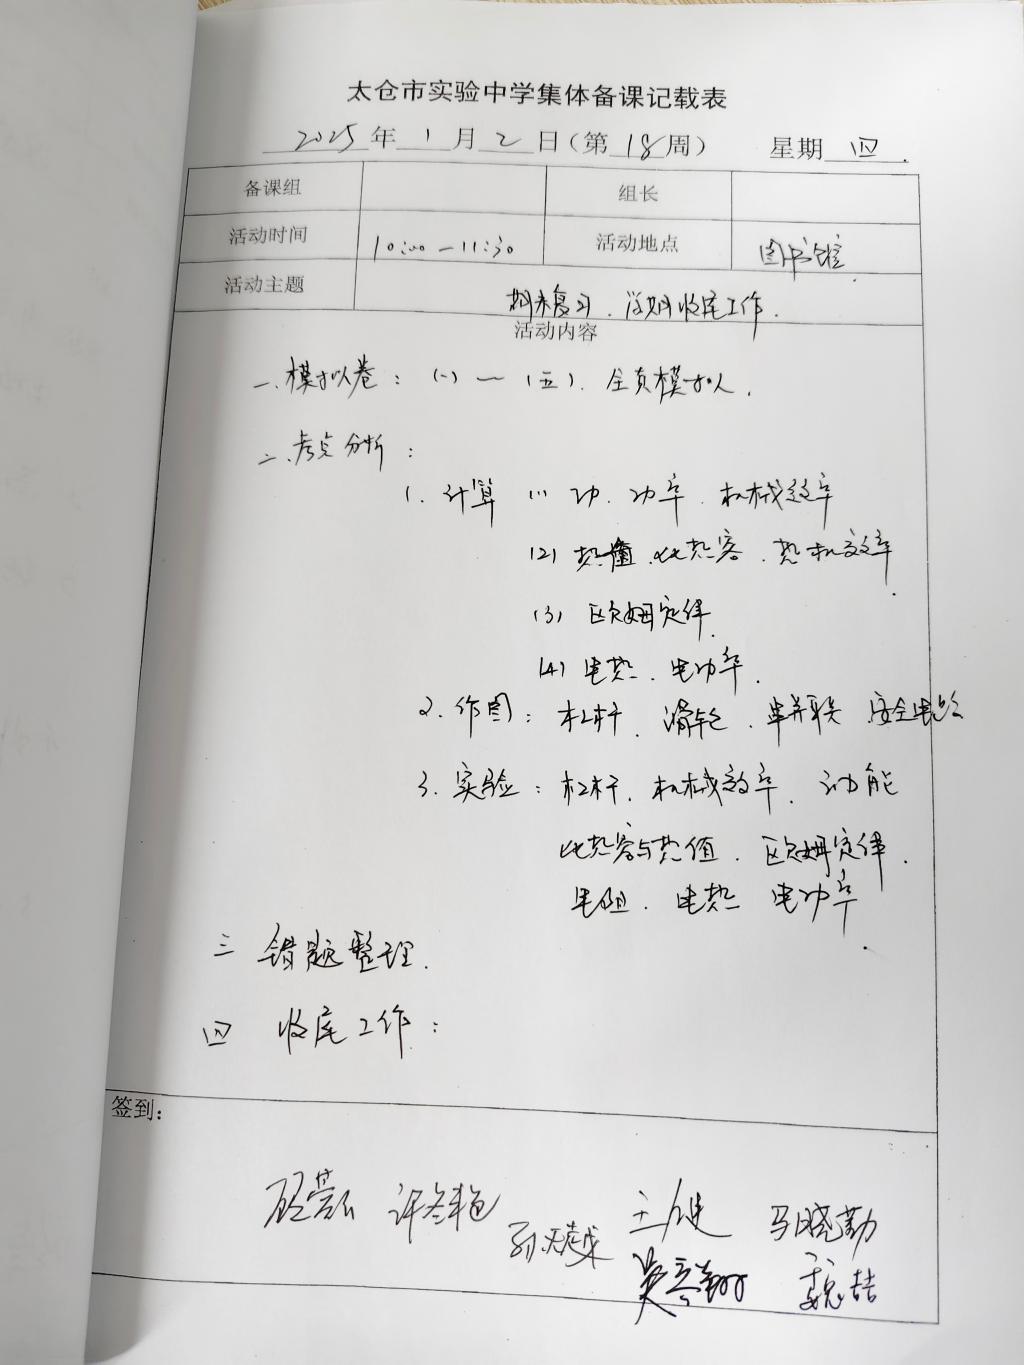 太仓市实验中学集体备课记载表
2025年1月2日(第18周) 星期四.
备课组 组长
活动时间 10:00-11:30 活动地点 图书馆
活动主题 期末复习、学期收尾工作.
活动内容
一.模拟卷:(一)—(五).全真模拟.
二、考点分析:
1. 计算 (1) 功、功率、机械效率
(2) 热量、比热容、热机效率.
(3) 欧姆定律.
(4) 电热、电功率.
2. 作图: 杠杆、滑轮、串并联、安全电路
3. 实验: 杠杆、机械效率、动能
比热容与热值、欧姆定律、
电阻、电热 电功率.
三 错题整理.
四 收尾工作:
签到:
许冬艳
孙天越 王健 马晓勤
魏喆